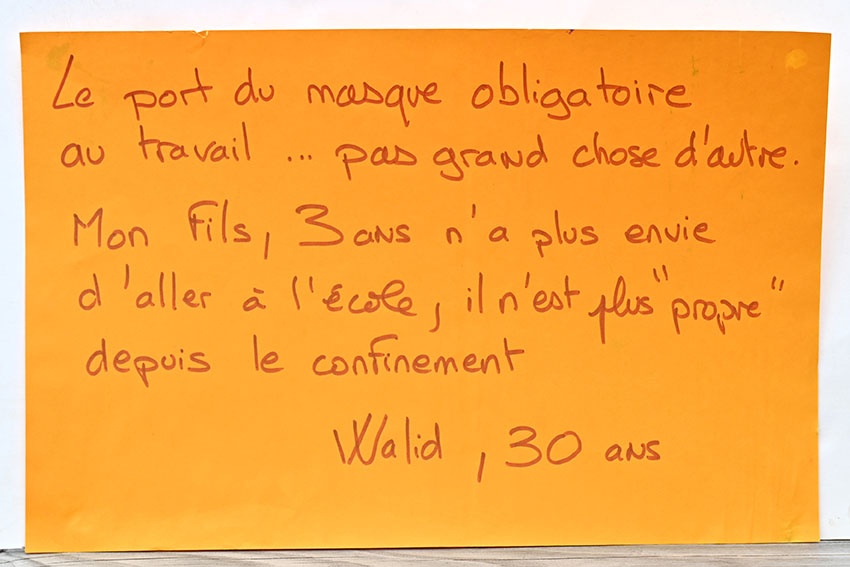 Le port du masque obligatoire
au travail ... pas grand chose d'autre.
Mon fils, 3 ans n'a plus envie
d'aller à l'école, il n'est plus "propre"
depuis le confinement
Walid, 30 ans